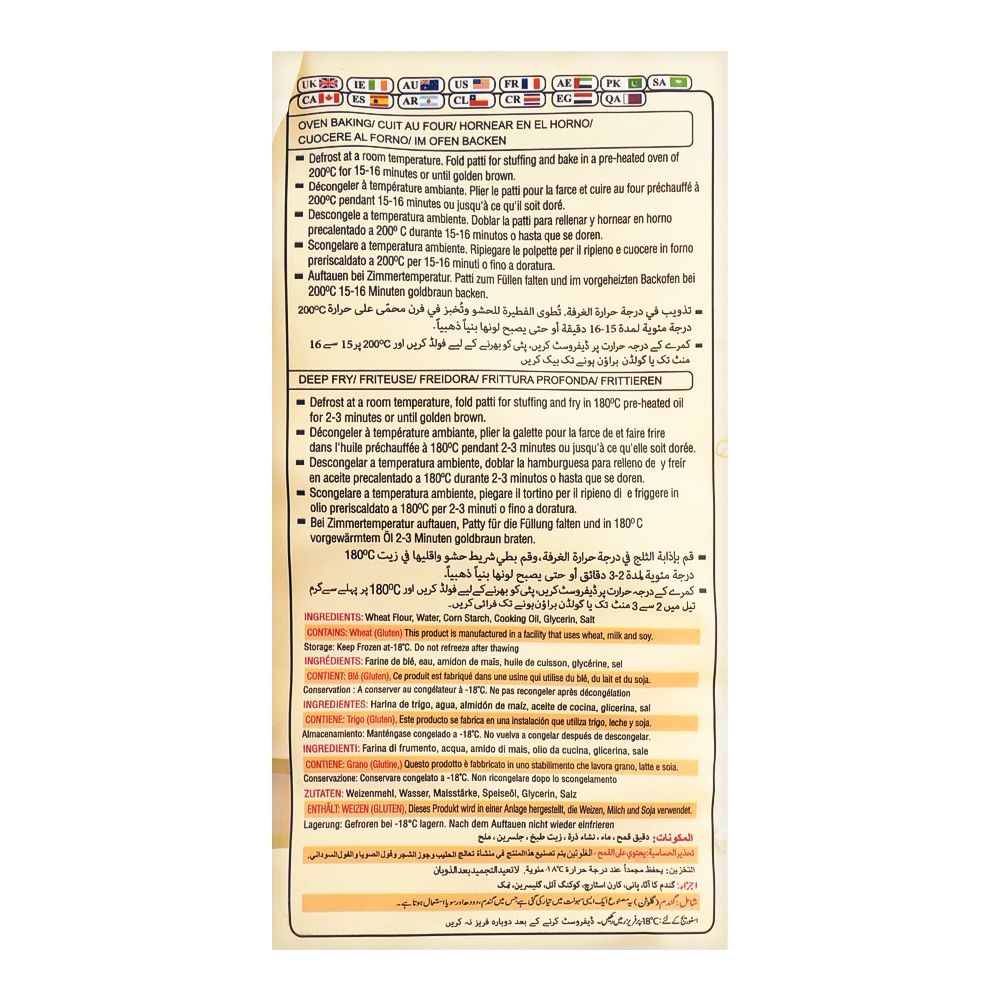 UK IE AU US FR AE PK SA
CA ES AR CL CR EG QA
OVEN BAKING/ CUIT AU FOUR/ HORNEAR EN EL HORNO/
CUOCERE AL FORNO/ IM OFEN BACKEN
Defrost at a room temperature. Fold patti for stuffing and bake in a pre-heated oven of
200ºC for 15-16 minutes or until golden brown.
Décongeler à température ambiante. Plier le patti pour la farce et cuire au four préchauffé à
200ºC pendant 15-16 minutes ou jusqu'à ce qu'il soit doré.
Descongele a temperatura ambiente. Doblar la patti para rellenar y hornear en horno
precalentado a 200º C durante 15-16 minutos o hasta que se doren.
Scongelare a temperatura ambiente. Ripiegare le polpette per il ripieno e cuocere in forno
preriscaldato a 200ºC per 15-16 minuti o fino a doratura.
Auftauen bei Zimmertemperatur. Patti zum Füllen falten und im vorgeheizten Backofen bei
200ºC 15-16 Minuten goldbraun backen.
تذويب في درجة حرارة الغرفة. تُطوى الفطيرة للحشو وتُخبز في فرن محمّى على حرارة 200ºC
درجة مئوية لمدة 15-16 دقيقة أو حتى يصبح لونها بنياً ذهبياً.
کمرے کے درجہ حرارت پر ڈیفروسٹ کریں، پٹی کو بھرنے کے لیے فولڈ کریں اور 200ºC پر 15 سے 16
منٹ تک یا گولڈن براؤن ہونے تک بیک کریں
DEEP FRY/ FRITEUSE/ FREIDORA/ FRITTURA PROFONDA/ FRITTIEREN
Defrost at a room temperature, fold patti for stuffing and fry in 180ºC pre-heated oil
for 2-3 minutes or until golden brown.
Décongeler à température ambiante, plier la galette pour la farce de et faire frire
dans l'huile préchauffée à 180ºC pendant 2-3 minutes ou jusqu'à ce qu'elle soit dorée.
Descongelar a temperatura ambiente, doblar la hamburguesa para relleno de y freír
en aceite precalentado a 180ºC durante 2-3 minutos o hasta que se doren.
Scongelare a temperatura ambiente, piegare il tortino per il ripieno di e friggere in
olio preriscaldato a 180ºC per 2-3 minuti o fino a doratura.
Bei Zimmertemperatur auftauen, Patty für die Füllung falten und in 180º C
vorgewärmtem Öl 2-3 Minuten goldbraun braten.
قم بإذابة الثلج في درجة حرارة الغرفة، وقم بطي شريط حشو واقليها في زيت 180ºC
درجة مئوية لمدة 2-3 دقائق أو حتى يصبح لونها بنياً ذهبياً.
کمرے کے درجہ حرارت پر ڈیفروسٹ کریں، پٹی کو بھرنے کے لیے فولڈ کریں اور 180ºC پر پہلے سے گرم
تیل میں 2 سے 3 منٹ تک یا گولڈن براؤن ہونے تک فرائی کریں۔
INGREDIENTS: Wheat Flour, Water, Corn Starch, Cooking Oil, Glycerin, Salt
CONTAINS: Wheat (Gluten) This product is manufactured in a facility that uses wheat, milk and soy.
Storage: Keep Frozen at-18°C. Do not refreeze after thawing
INGRÉDIENTS: Farine de blé, eau, amidon de maïs, huile de cuisson, glycérine, sel
CONTIENT: Blé (Gluten), Ce produit est fabriqué dans une usine qui utilise du blé, du lait et du soja.
Conservation : A conserver au congélateur à -18°C. Ne pas recongeler après décongélation
INGREDIENTES: Harina de trigo, agua, almidón de maíz, aceite de cocina, glicerina, sal
CONTIENE: Trigo (Gluten), Este producto se fabrica en una instalación que utiliza trigo, leche y soja.
Almacenamiento: Manténgase congelado a -18°C. No vuelva a congelar después de descongelar.
INGREDIENTI: Farina di frumento, acqua, amido di mais, olio da cucina, glicerina, sale
CONTIENE: Grano (Glutine,) Questo prodotto è fabbricato in uno stabilimento che lavora grano, latte e soia.
Conservazione: Conservare congelato a -18°C. Non ricongelare dopo lo scongelamento
ZUTATEN: Weizenmehl, Wasser, Maisstärke, Speiseöl, Glycerin, Salz
ENTHÄLT: WEIZEN (GLUTEN), Dieses Produkt wird in einer Anlage hergestellt, die Weizen, Milch und Soja verwendet.
Lagerung: Gefroren bei -18°C lagern. Nach dem Auftauen nicht wieder einfrieren
المكونات: دقيق قمح ، ماء ، نشاء ذرة ، زيت طبخ ، جلسرين ، ملح
تحذير الحساسية: يحتوي على القمح - الغلوتين يتم تصنيع هذا المنتج في منشأة تعالج الحليب وجوز الشجر وفول الصويا والفول السوداني.
التخزين: يحفظ مجمداً عند درجة حرارة ١٨°C- مئوية. لا تعيد التجميد بعد الذوبان
اجزاء: گندم کا آٹا، پانی، کارن اسٹارچ، کوکنگ آئل، گلیسرین، نمک
شامل: گندم (گلوٹن) یہ مصنوع ایک ایسی سہولت میں تیار کی گئی ہے جس میں گندم، دودھ اور سویا استعمال ہوتا ہے۔
اسٹوریج کے لئے: 18°C- پر فریزر میں رکھیں۔ ڈیفروسٹ کرنے کے بعد دوبارہ فریز نہ کریں